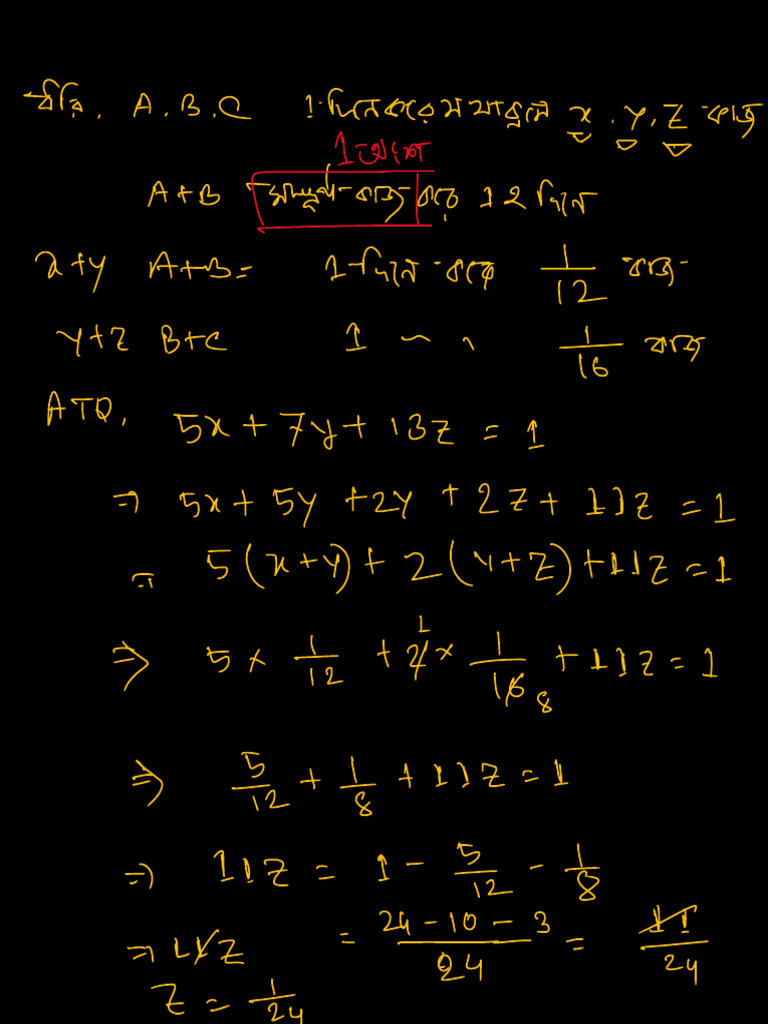 ধরি, A, B, C 1 দিনে করে যথাক্রমে x, y, z কাজ
1 অংশ
A+B সম্পূর্ণ কাজ করে 12 দিনে
x+y A+B= 1 দিনে করে 1/12 কাজ
y+z B+C 1 ~ 〃 1/16 কাজ
ATQ,
5x + 7y + 13z = 1
⇒ 5x + 5y + 2y + 2z + 11z = 1
= 5(x+y) + 2(y+z) + 11z = 1
⇒ 5 × 1/12 + 2 1 × 1/16 8 + 11z = 1
⇒ 5/12 + 1/8 + 11z = 1
⇒ 11z = 1 - 5/12 - 1/8
⇒ 11z = (24 - 10 - 3)/24 = 11/24
z = 1/24